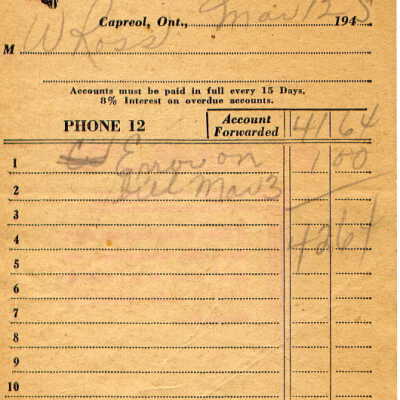 Capreol, Ont., Mar 12 1945
M W Ross
Accounts must be paid in full every 15 Days,
8% Interest on overdue accounts.
PHONE 12 Account Forwarded 41 64
1 Error on 1 00
2 Bill Mar 3
3
4 42 64
5
6
7
8
9
10